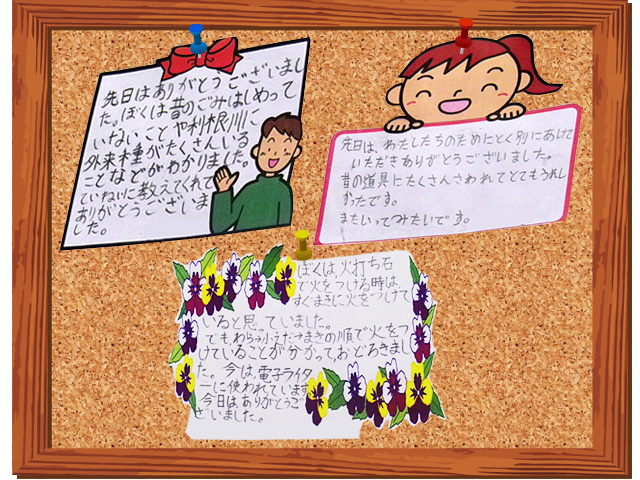 先日はありがとうございまし
た。ぼくは昔のごみはしめって
いないことや利根川に
外来種がたくさんいる
ことなどがわかりました。
ていねいに教えてくれて
ありがとうございま
した。
先日は、わたしたちのためにとく別にあけて
いただきありがとうございました。
昔の道具にたくさんさわれてとてもうれし
かったです。
またいってみたいです。
ぼくは、火打ち石
で火をつける時は、
すぐまきに火をつけて
いると思っていました。
でもわら→小えだ→まきの順で火をつ
けていることが分かって、おどろきまし
た。今は、電子ライタ
ーに使われています
今日はありがとうご
ざいました。